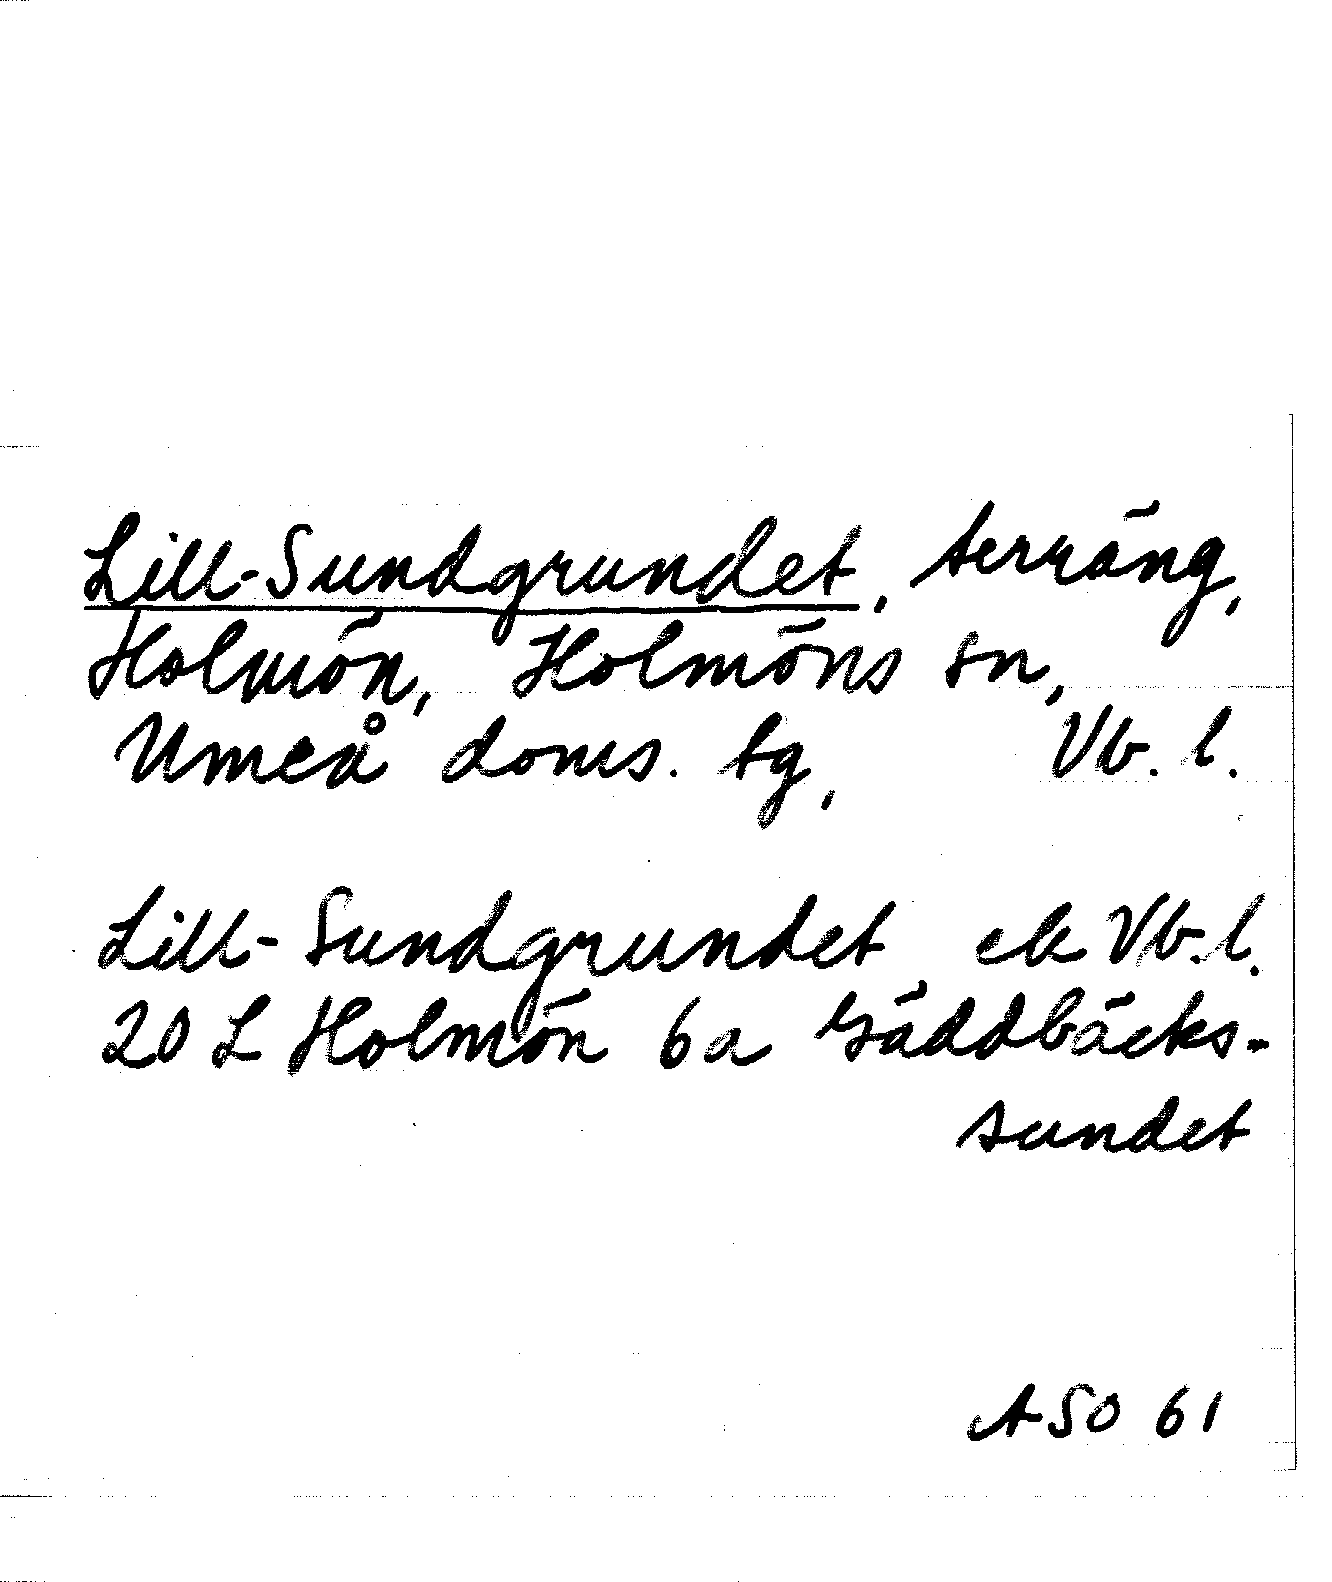 Lill-Sundgrundet, terräng,
Holmön, Holmöns sn,
Umeå doms. tg, Vb. l.
Lill-Sundgrundet ek Vb. l.
20 L Holmön 6a Gäddbäcks-
sundet
ASO 61